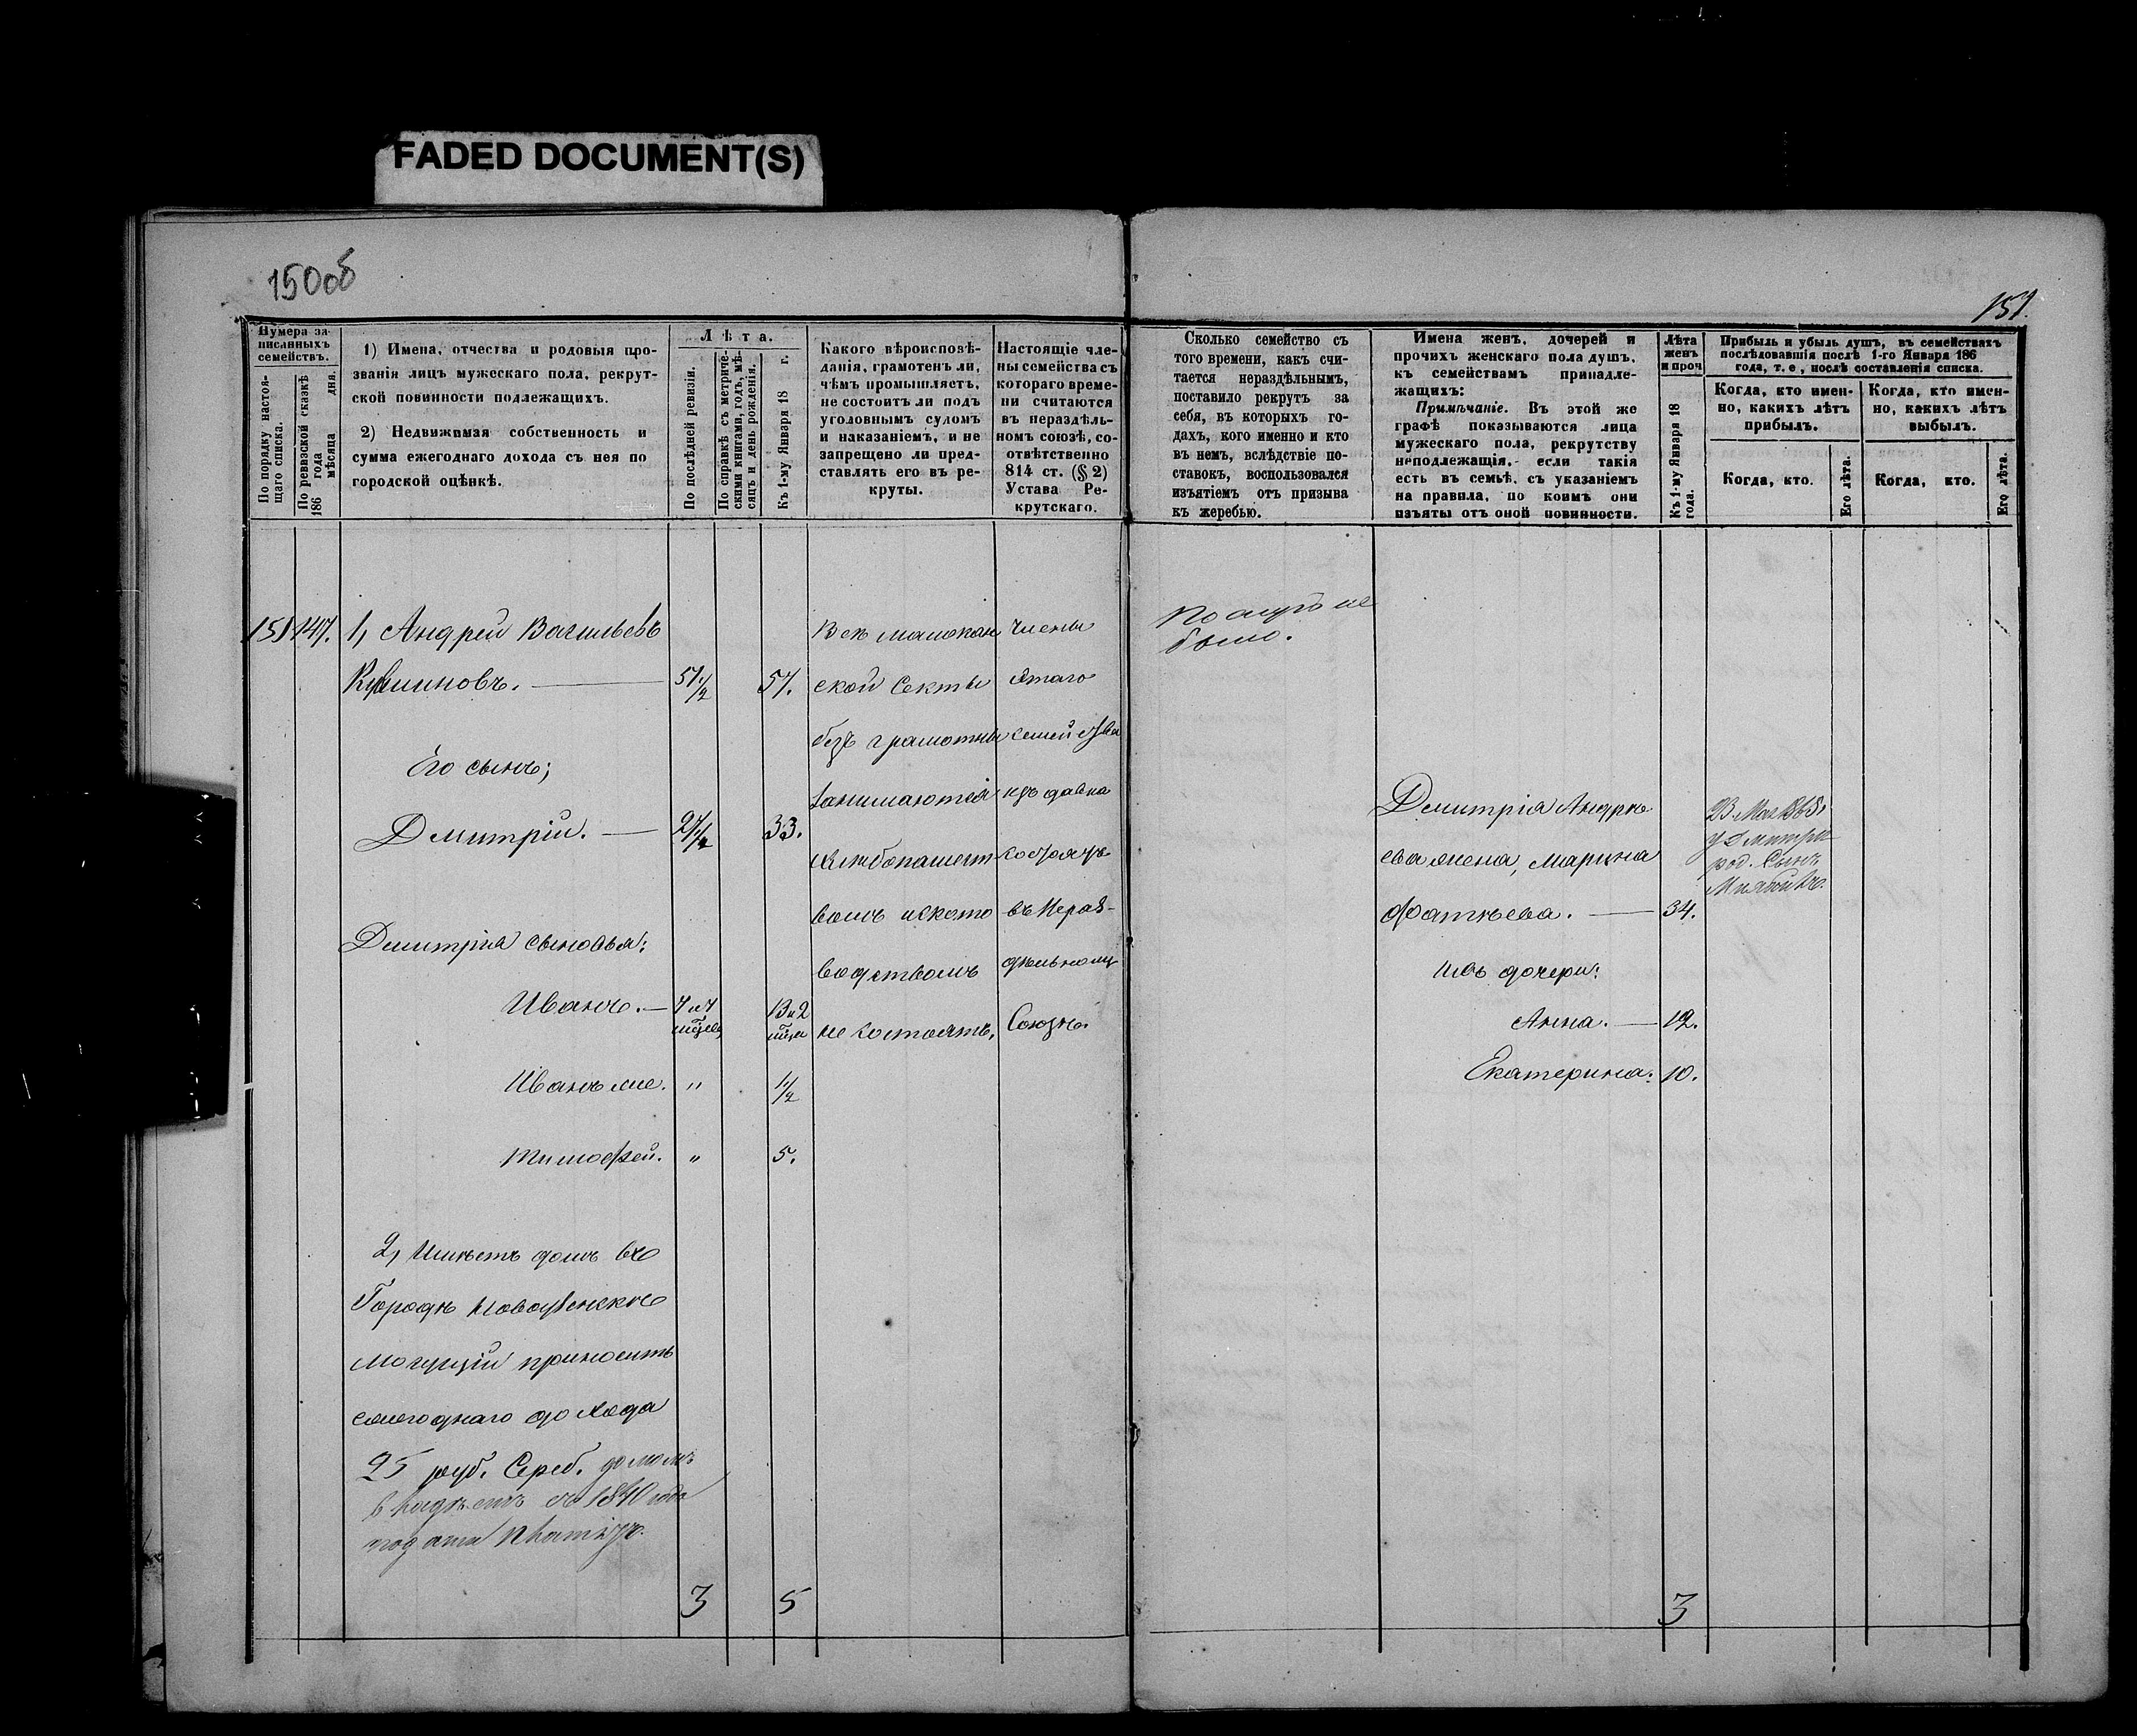 FADED DOCUMENT(S)
150об
151.
Нумера за-
писанныхъ
семействъ.
По порядку настоя-
щаго списка.
По ревизской сказкѣ
186 года
мѣсяца дня.
1) Имена, отчества и родовыя про-
званія лицъ мужескаго пола, рекрут-
ской повинности подлежащихъ.
2) Недвижимая собственность и
сумма ежегоднаго дохода съ нея по
городской оцѣнкѣ.
Лѣта.
По послѣдней ревизіи.
По справкѣ съ метриче-
скими книгами, годъ, мѣ-
сяцъ и день рожденія.
Къ 1-му Января 18 г.
Какого вѣроисповѣ-
данія, грамотенъ ли,
чѣмъ промышляетъ,
не состоитъ ли подъ
уголовнымъ судомъ
и наказаніемъ, и не
запрещено ли пред-
ставлять его въ ре-
круты.
Настоящіе чле-
ны семейства съ
котораго време-
ни считаются
въ нераздѣль-
номъ союзѣ, со-
отвѣтственно
814 ст. (§ 2)
Устава Ре-
крутскаго.
Сколько семейство съ
того времени, какъ счи-
тается нераздѣльнымъ,
поставило рекрутъ за
себя, въ которыхъ го-
дахъ, кого именно и кто
въ немъ, вслѣдствіе по-
ставокъ, воспользовался
изъятіемъ отъ призыва
къ жеребью.
Имена женъ, дочерей и
прочихъ женскаго пола душъ,
къ семействамъ принадле-
жащихъ:
Примѣчаніе. Въ этой же
графѣ показываются лица
мужескаго пола, рекрутству
неподлежащія, если такія
есть въ семьѣ, съ указаніемъ
на правила, по коимъ они
изъяты отъ оной повинности.
Лѣта
женъ
и проч
Къ 1-му Января 18
года.
Прибыль и убыль душъ, въ семействахъ
послѣдовавшія послѣ 1-го Января 186
года, т. е., послѣ составленія списка.
Когда, кто имен-
но, какихъ лѣтъ
прибылъ.
Когда, кто имен-
но, какихъ лѣтъ
выбылъ.
Когда, кто.
Его лѣта.
Когда, кто.
Его лѣта.
151 147. 1, Андрей Васильевъ
51 1/2 57.
Его сынъ;
Дмитрій. 27 1/2 33.
Дмитрія сыновья:
Иванъ. 7 и 7 13 и 2
Иванъ же. " 1/2
Тимофей. " 5.
2, Имѣетъ домъ въ
Городѣ Новоузенскѣ
могущій приносить
ежегоднаго дохода
25 руб. Сереб. домомъ
владѣетъ съ 1840 года
3 5
Всѣ малокан
ской Секты
безъ грамотны
занимаются
хлѣбопашест
вомъ и ското
водствомъ
не состоятъ,
Члены
этаго
семейства
издавна
состоятъ
въ Нераз-
дѣльномъ
Союзѣ.
было.
Дмитрія Андре
ева жена, Марина
Фатѣева. 34.
ихъ дочери:
Анна. 12.
Екатерина. 10.
3
у Дмитрія
род. Сынъ